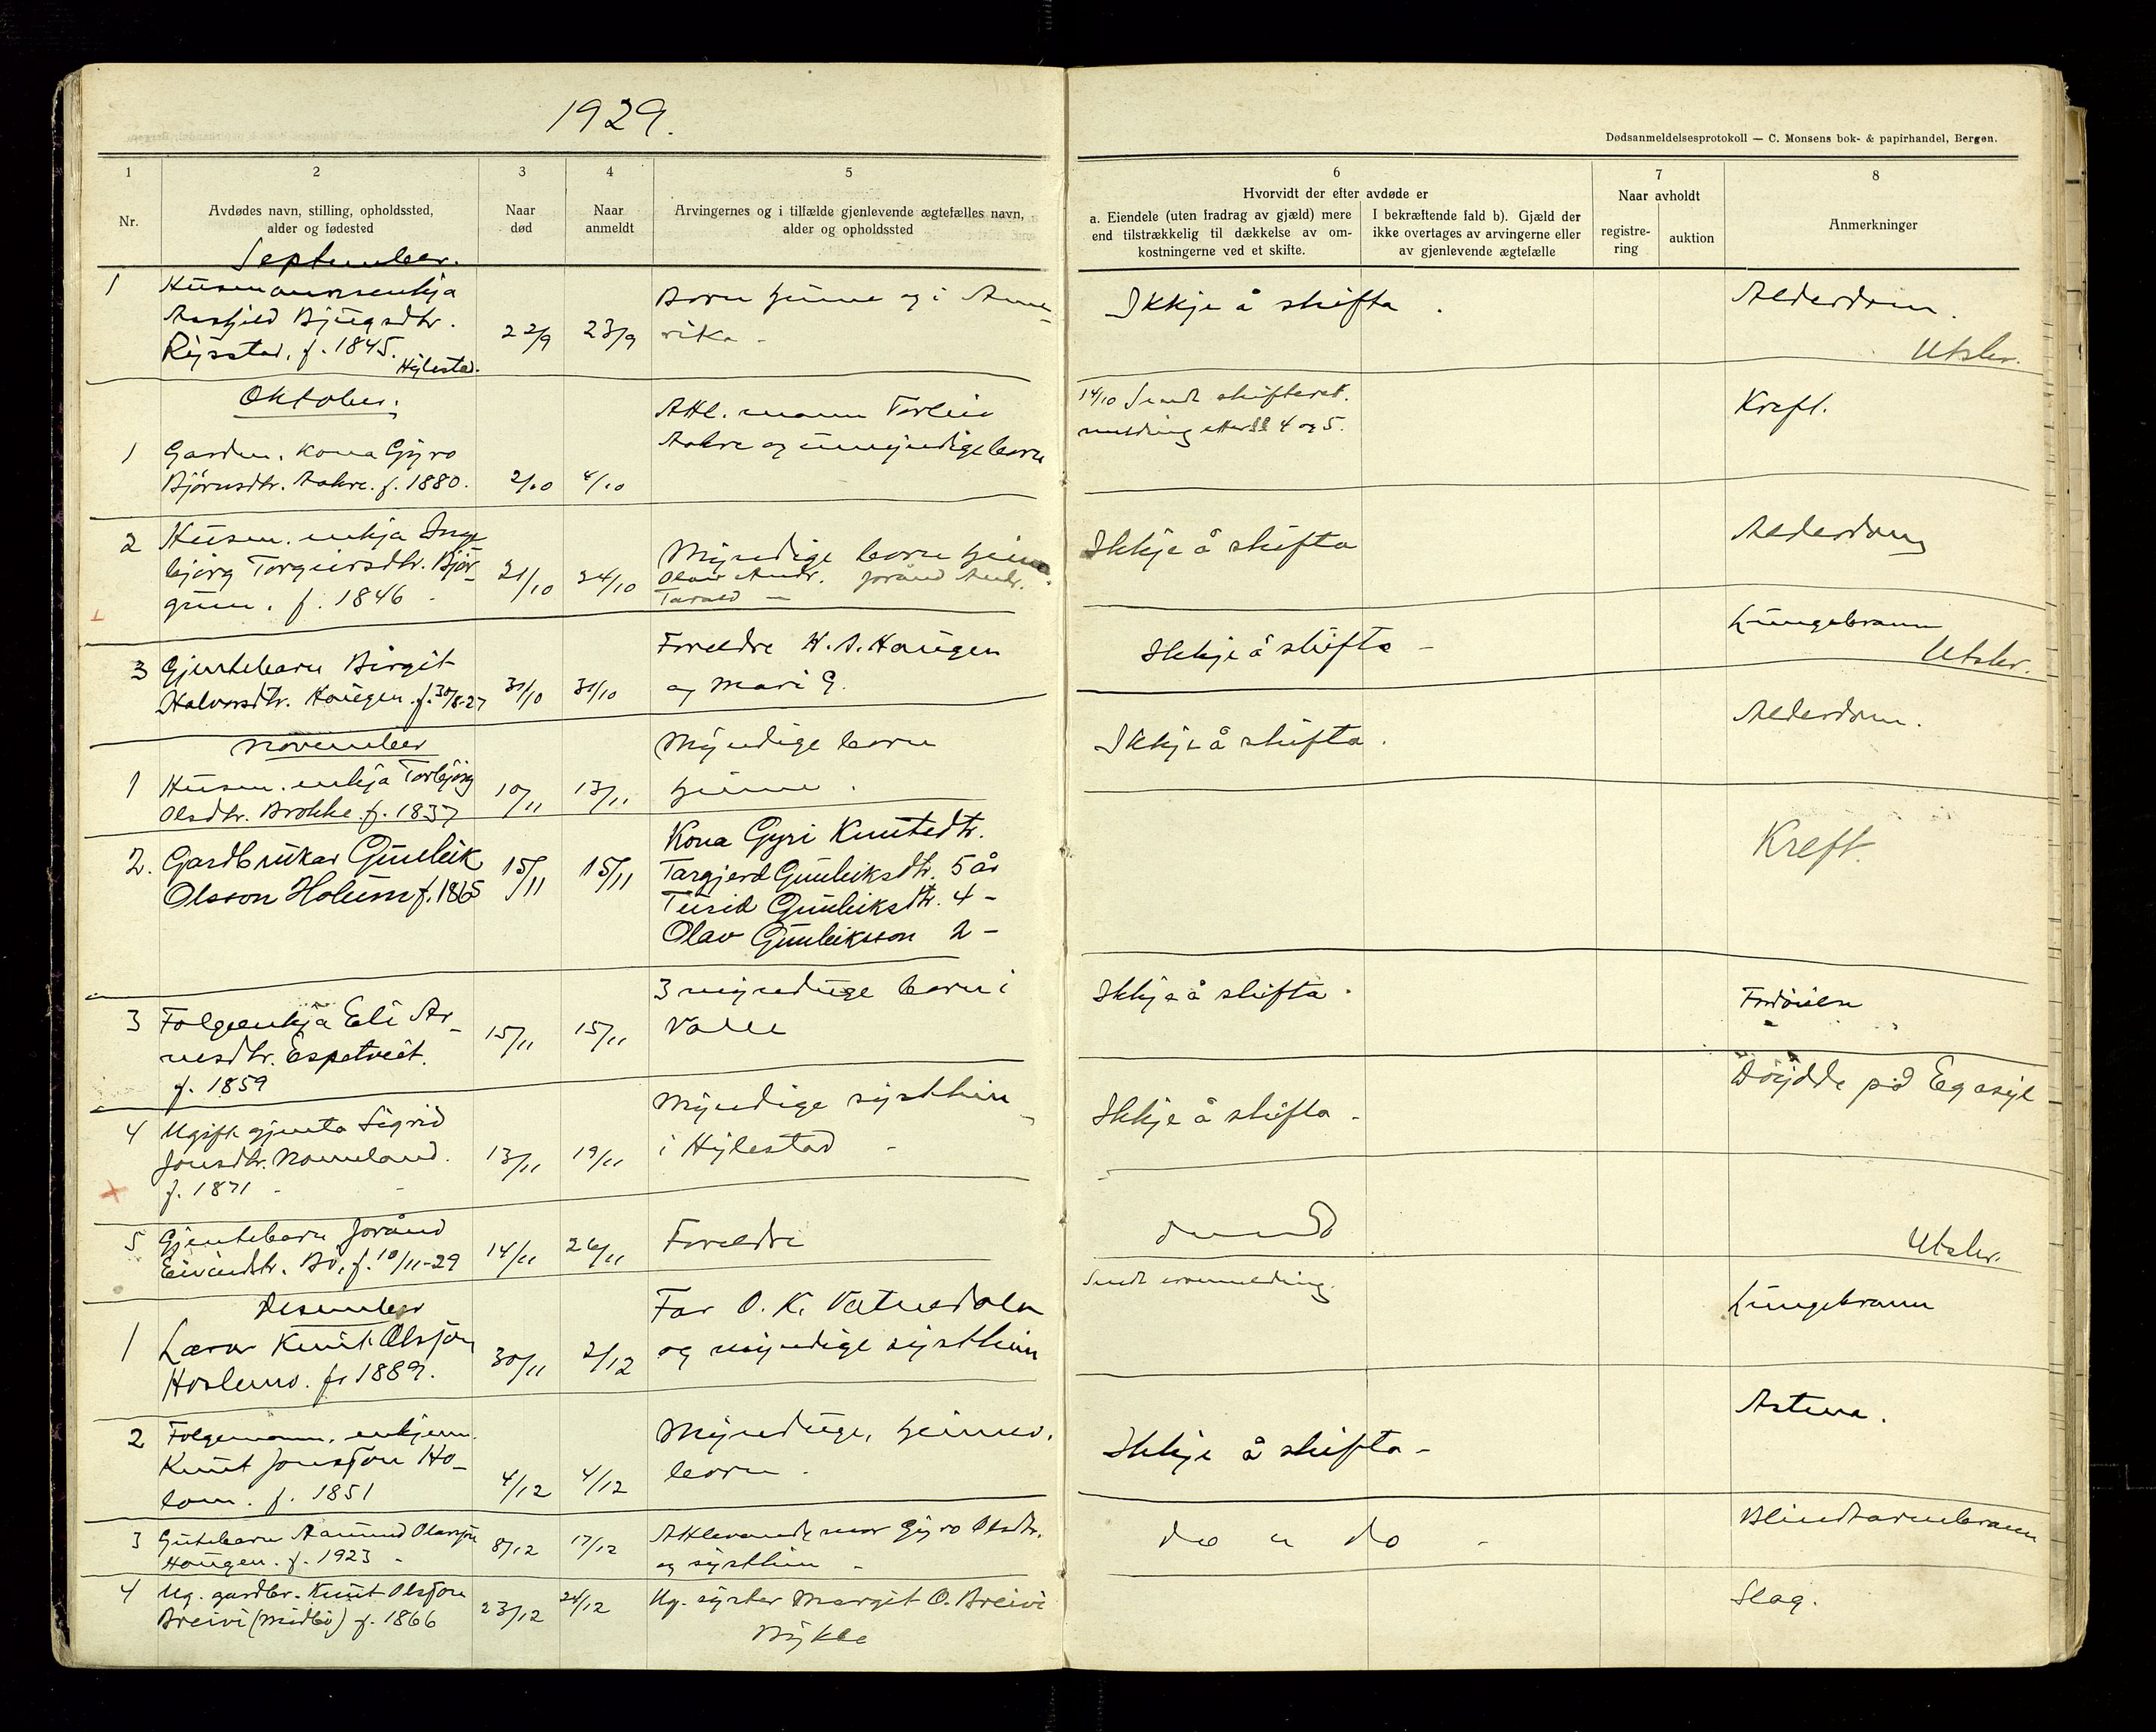 1929.
Dødsanmeldelsesprotokoll — C. Monsens bok- & papirhandel, Bergen.
1
2
3
4
5
6
7
8
Nr.
Avdødes navn, stilling, opholdssted,
alder og fødested
Naar
død
Naar
anmeldt
Arvingernes og i tilfælde gjenlevende ægtefælles navn,
alder og opholdssted
Hvorvidt der efter avdøde er
a. Eiendele (uten fradrag av gjæld) mere
end tilstrækkelig til dækkelse av om-
kostningerne ved et skifte.
I bekræftende fald b). Gjæld der
ikke overtages av arvingerne eller
av gjenlevende ægtefælle
Naar avholdt
registre-
ring
auktion
Anmerkninger
September.
1
Husmannsenkja
Aasfjeld Bjugsdtr.
Rysstad, f. 1845.
Hylestad.
22/9
23/9
Born heime og i Ame-
rika -
Ikkje å skifta .
Alderdom.
Utskr.
Oktober.
1
Gardm. kona Gyro
Bjørnsdtr. Aakre. f. 1880.
2/10
4/10
Attl. mann Torleiv
Aakre og umyndige born
14/10 Sendt skifteret.
melding etter §§ 4 og 5.
Kreft.
2
Husm. enkja Inge
bjørg Torgeirsdtr. Bjør-
gum. f. 1846 -
21/10
24/10
Myndige born heime
Olav Andr. Jorånd Andr.
Tarald —
Ikkje å skifta
Alderdom
3
Gjentebarn Birgit
Halvorsdtr. Haugen. f. 30/8-27
31/10
31/10
Foreldre H. A. Haugen
og Mari G.
Ikkje å skifta -
Lungebrann
Utskr.
November
1
Husm. enkja Torbjørg
Olsdtr. Brokke. f. 1837
10/11
13/11
Myndige born
heime .
Ikkje å skifta .
Alderdom.
2.
Gardbrukar Gunleik
Olsson Holum f. 1865
15/11
15/11
Kona Gyri Knutsdtr.
Targjerd Gunleiksdtr. 5 år
Turid Gunleiksdtr. 4 -
Olav Gunleiksson 2 -
Kreft.
3
Folgeenkja Eli Ar-
nesdtr. Espetveit.
f. 1859
15/11
15/11
3 myndige born i
Valle
Ikkje å skifta .
4
Ugift gjenta Sigrid
Jonsdtr. Nomeland.
f. 1871 -
13/11
19/11
Myndige systkin
i Hylestad -
Ikkje å skifta -
Døydde på Eg asyl
5
Gjentebarn Jorånd
Eivindstr. Bø, f. 10/11-29
14/11
26/11
Foreldre
Utskr.
Desember
1
Lærar Knut Olsson
Hoslemo. f. 1889.
30/11
2/12
Far O. K. Vatnedaln
og myndige systkin
Lungebrann
2
Folgemann, enkjem.
Knut Jonsson Ho-
lom. f. 1851
4/12
4/12
Myndige, heimev.
born .
Ikkje å skifta -
Astma.
3
Gutebarn Aamund Olavsson
Haugen. f. 1923 -
8/12
17/12
Attlevande mor Gyro Olsdtr.
og systkin -
do " do -
Blindtarmbrann
4
Ug. gardbr. Knut Olsson
Breivi (Midbø) f. 1866
23/12
24/12
Ug. syster Margit O. Breivi
Bykle
Slag.